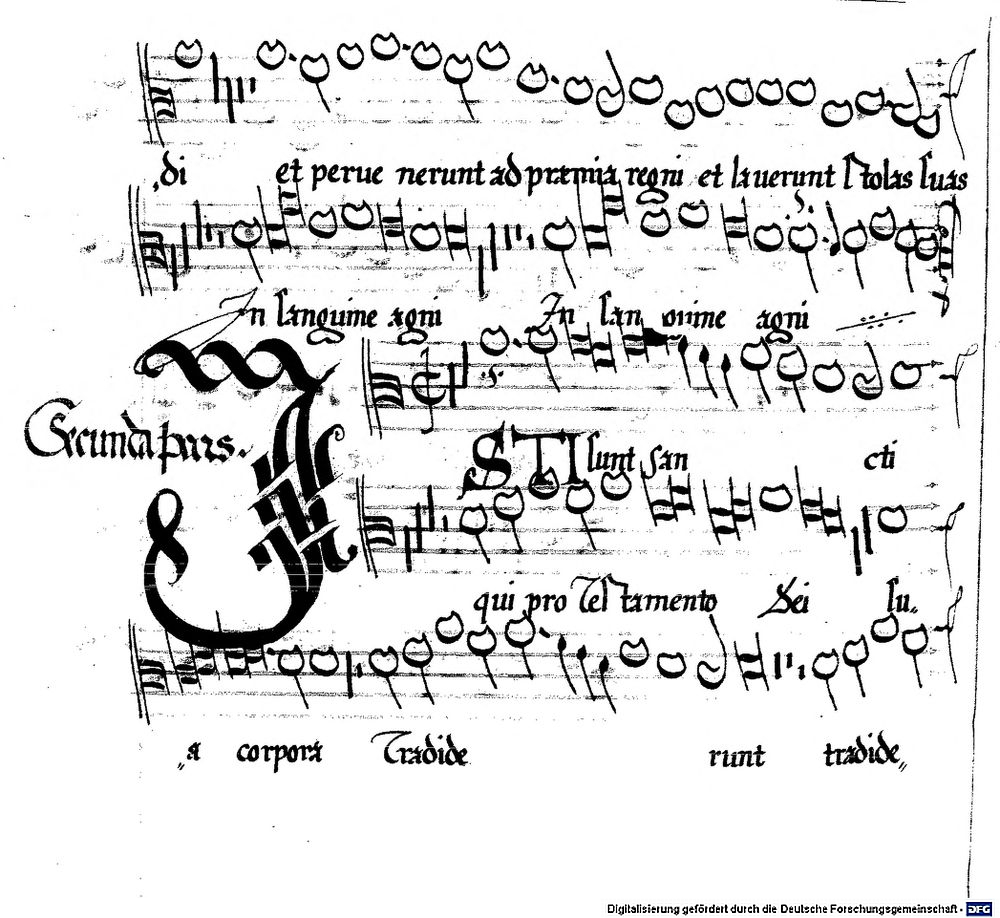 „di et perue nerunt ad præmia regni et lauerunt Stolas suas
In sanguine agni In san guine agni
Secunda pars.
ISTI sunt san cti
qui pro Testamento Dei su„
„a corpora Tradide runt tradide„
Digitalisierung gefördert durch die Deutsche Forschungsgemeinschaft - DFG